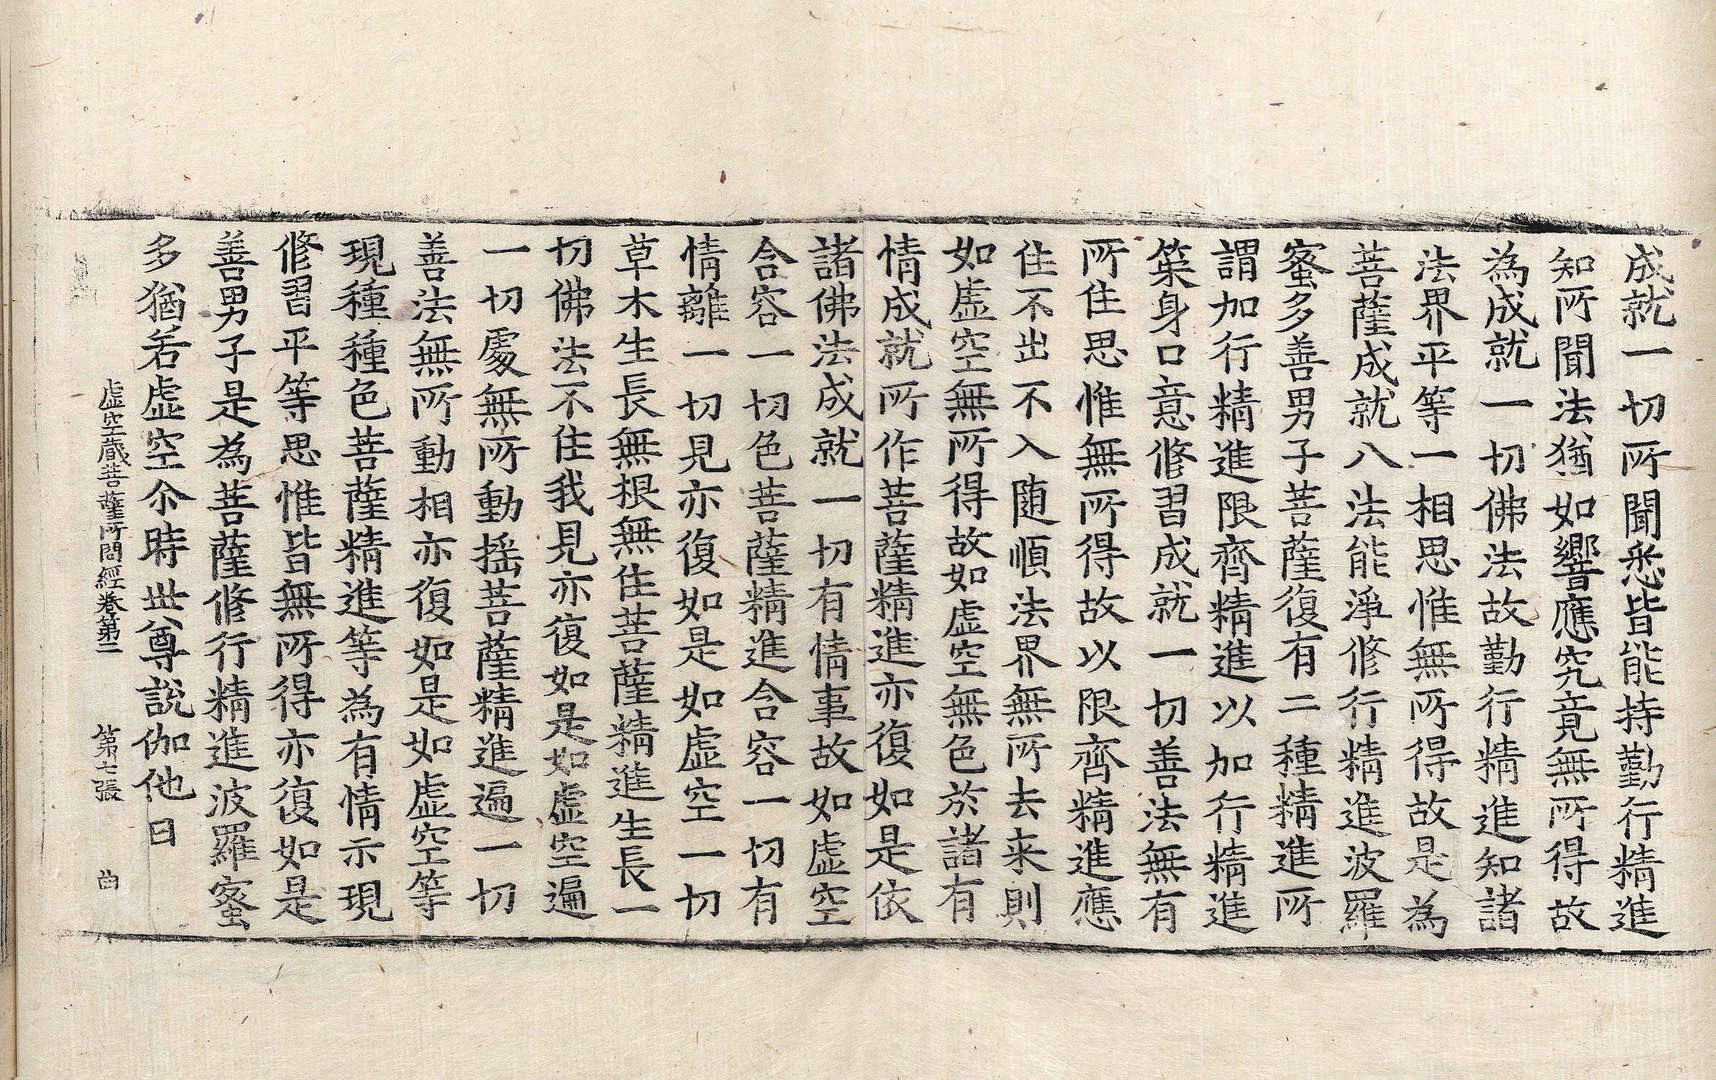 成就一切所聞悉皆能持勤行精進
知所聞法猶如響應究竟無所得故
為成就一切佛法故勤行精進知諸
法界平等一相思惟無所得故是為
菩薩成就八法能淨修行精進波羅
蜜多善男子菩薩復有二種精進所
謂加行精進限齊精進以加行精進
䇿身口意修習成就一切善法無有
所住思惟無所得故以限齊精進應
住不出不入随順法界無所去来則
如虛空無所得故如虛空無色於諸有
情成就所作菩薩精進亦復如是依
諸佛法成就一切有情事故如虛空
含容一切色菩薩精進含容一切有
情離一切見亦復如是如虛空一切
草木生長無根無住菩薩精進生長一
切佛法不住我見亦復如是如虛空遍
一切處無所動揺菩薩精進遍一切
善法無所動相亦復如是如虛空等
現種種色菩薩精進等為有情示現
修習平等思惟皆無所得亦復如是
善男子是為菩薩修行精進波羅蜜
多猶若虛空尒時世尊說伽他曰
虛空藏菩薩所問經卷第二 第七張 曲